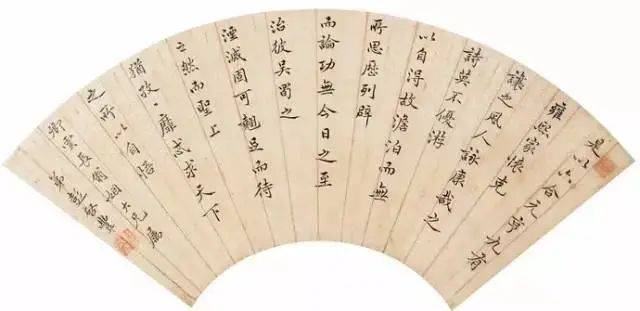 是以六合元亨九有
雍熙家懷克
讓之風人詠康哉之
詩莫不優游
以自得故澹泊而無
所思歷列辟
而論功無今日之至
治彼吳蜀之
湮滅固可翹足而待
之然而聖上
猶孜〻靡忒求天下
之所以自悟
卿雲長翁姻大兄屬
弟彭啟豐